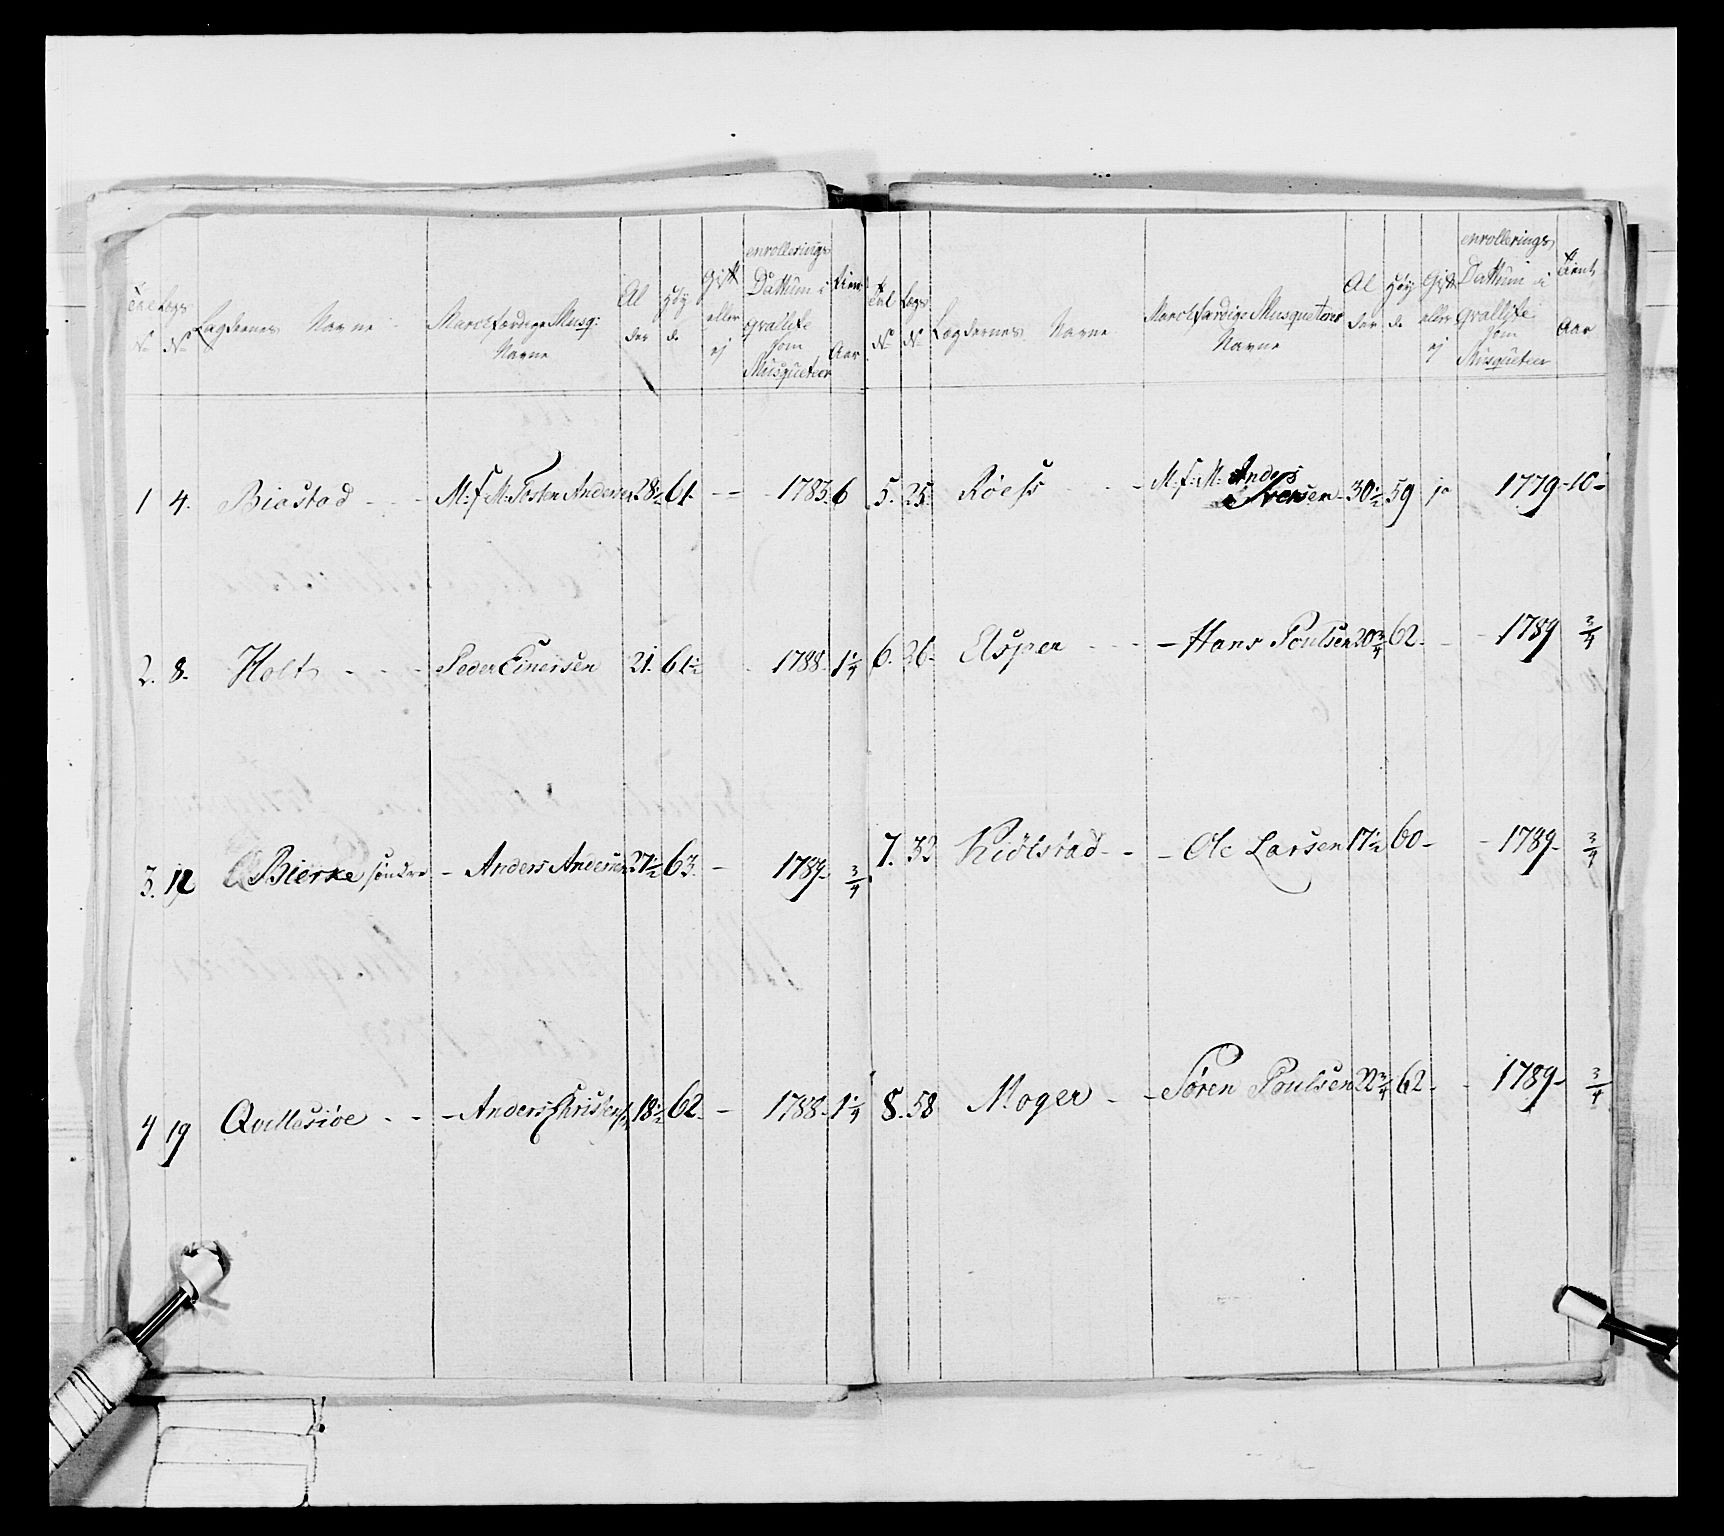 Tal No
Lægs No
Lægdernes Navne
March færdige Musq: Navne
Al der
Høy de
Gift eller ej
enrollerings Dattum i qvallite som Musqueteer
Tient Aar
1 4. Biøstad - - - M: f M: Tosten Andersen 28 1/2 61. - - - 1783. 6
2. 8. Holt - - - Peder Einersen 21. 61 1/2 - 1788. 1 1/4
3. 12 Bierke søndre - Anders Andersen 27 1/2 63. - 1789. 3/4
4 19 Qvillesiøe - - - Anders Christens: 18 1/2 62. - 1788. 1 1/4
Tal No
Lægs No
Lægdernes Navne
March færdige Musqueterer Navne
Al der
Høy de
Gift eller ej
enrollerings Dattum i qvallite som Musqueteer
Tient Aar
5. 25. Røess - - M: f: M: Anders
Iversen - 30 1/2 59 ja 1779 - 10 -
6. 26. Elsper - - - - Hans Poulsen 20 3/4 62. - - 1789 3/4
7. 32 Kiølstad - - - Ole Larsen 17 1/2 60 - - 1789 - 3/4
8. 58 Moger - - Søren Poulsen 22 3/4 62 - - 1789 - 3/4